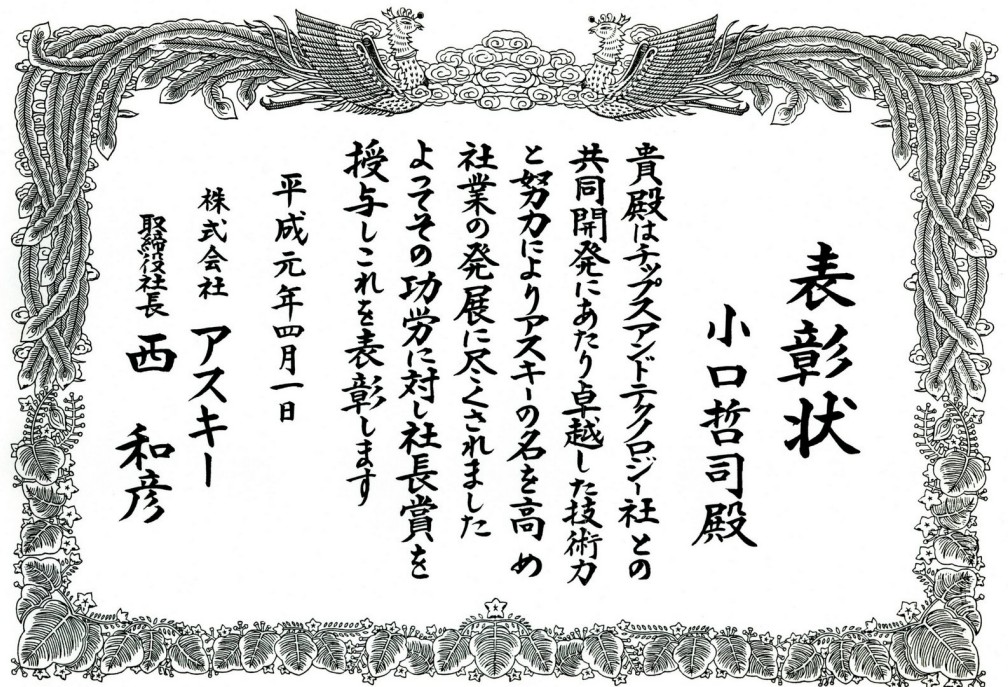 表彰状
小口哲司殿
貴殿はチップスアンドテクノロジー社との
共同開発にあたり卓越した技術力
と努力によりアスキーの名を高め
社業の発展に尽くされました
よってその功労に対し社長賞を
授与しこれを表彰します
平成元年四月一日
株式会社 アスキー
取締役社長 西 和彦